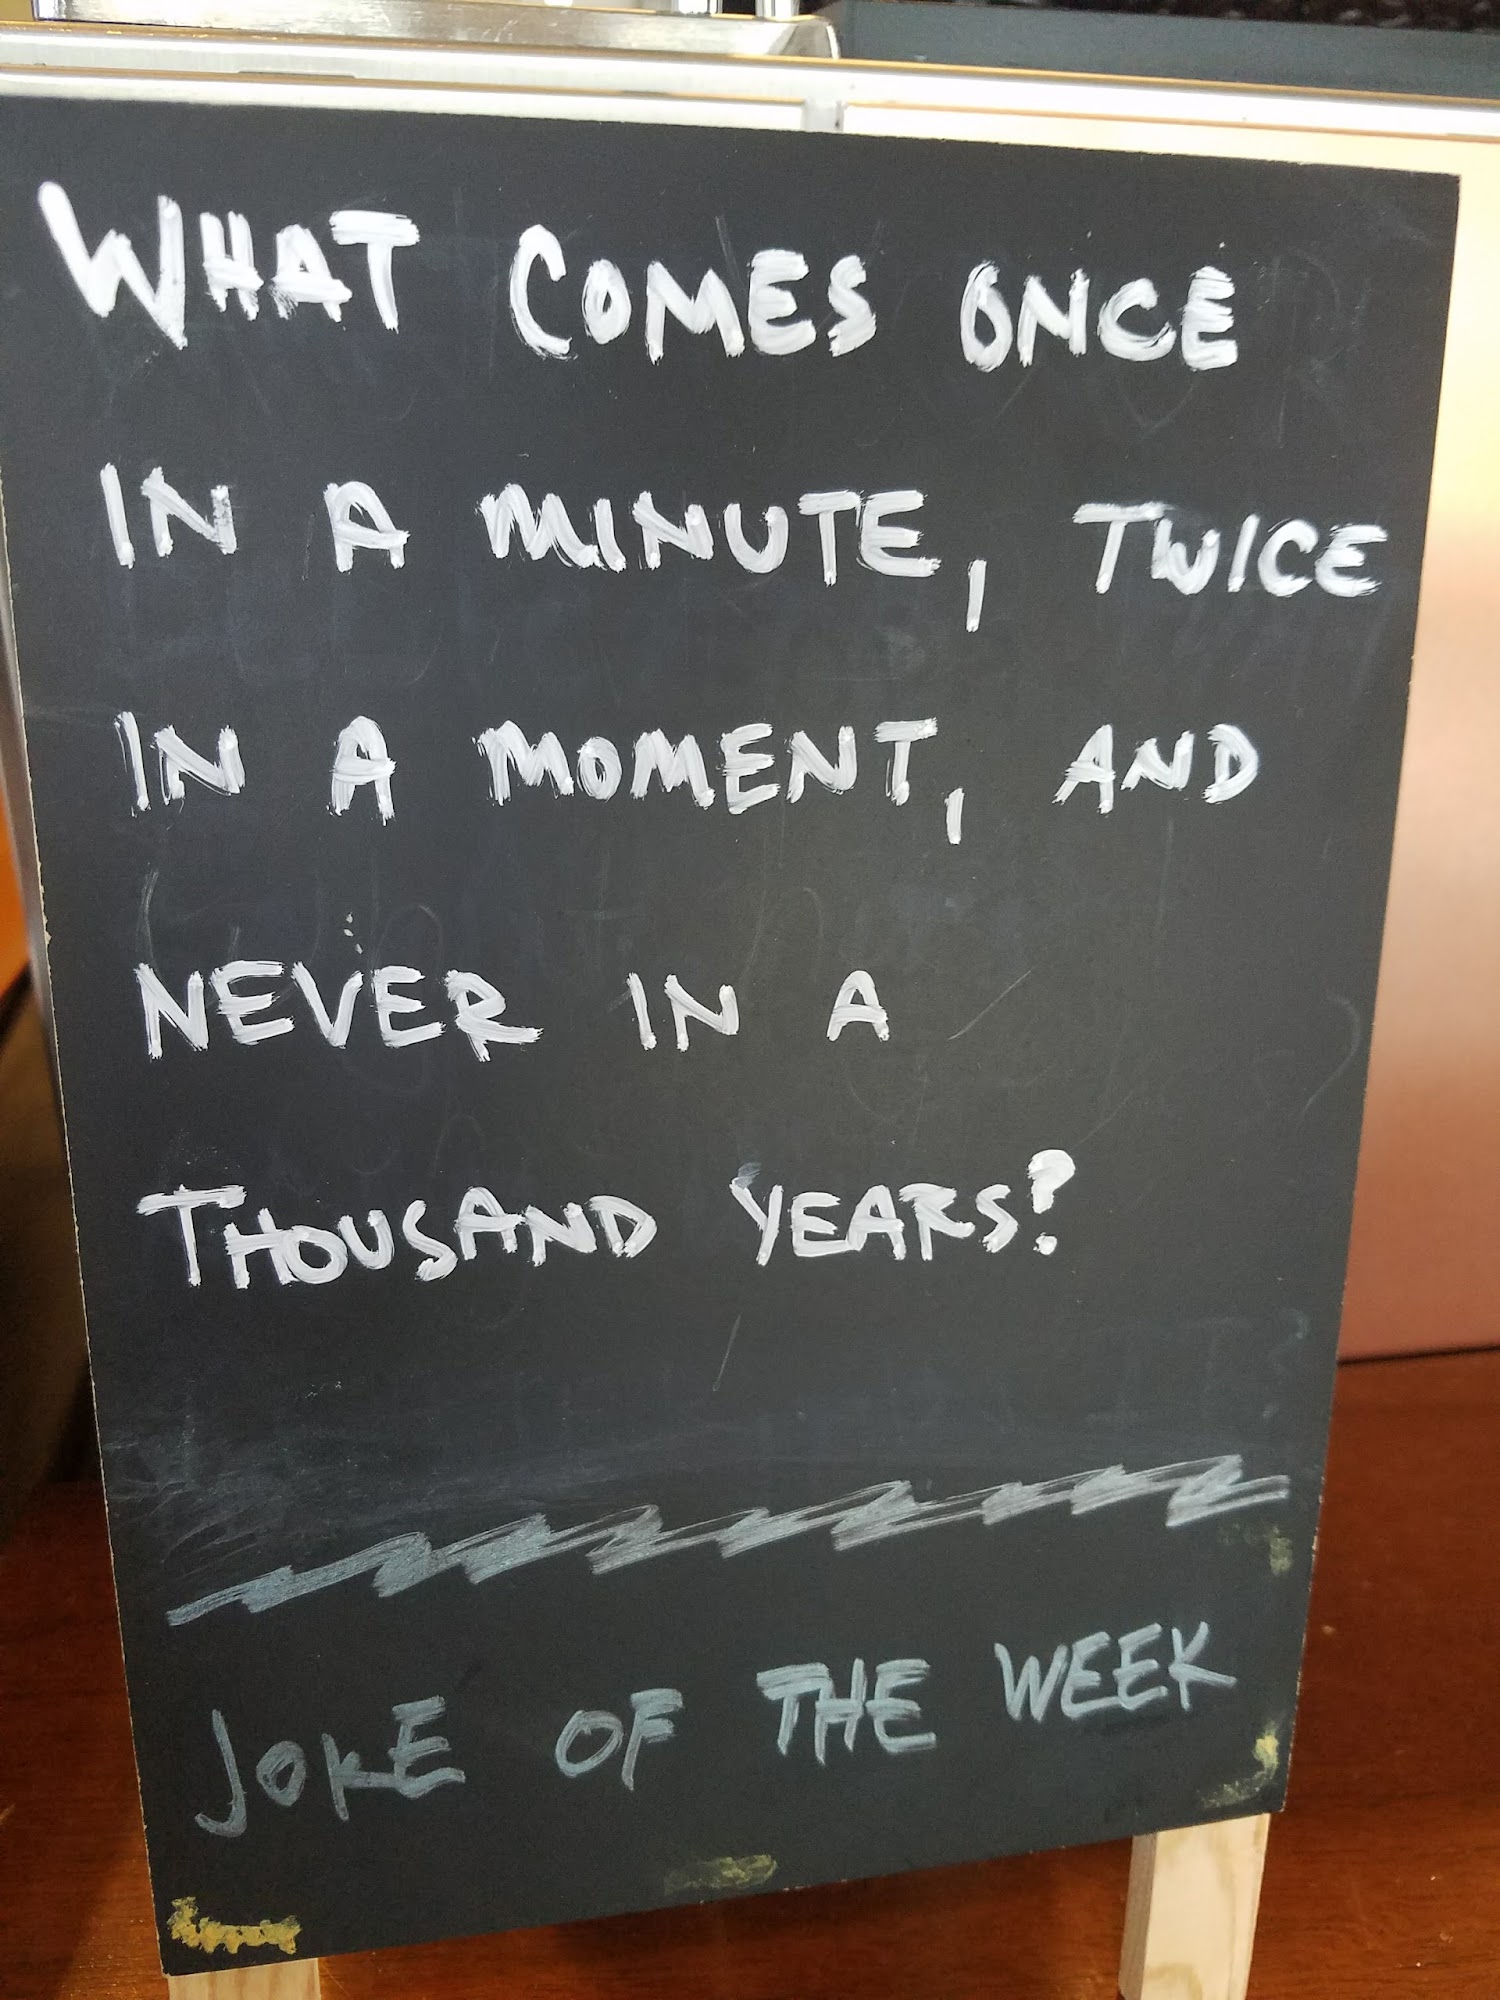 WHAT COMES ONCE
IN A MINUTE, TWICE
IN A MOMENT, AND
NEVER IN A
THOUSAND YEARS?
JOKE OF THE WEEK